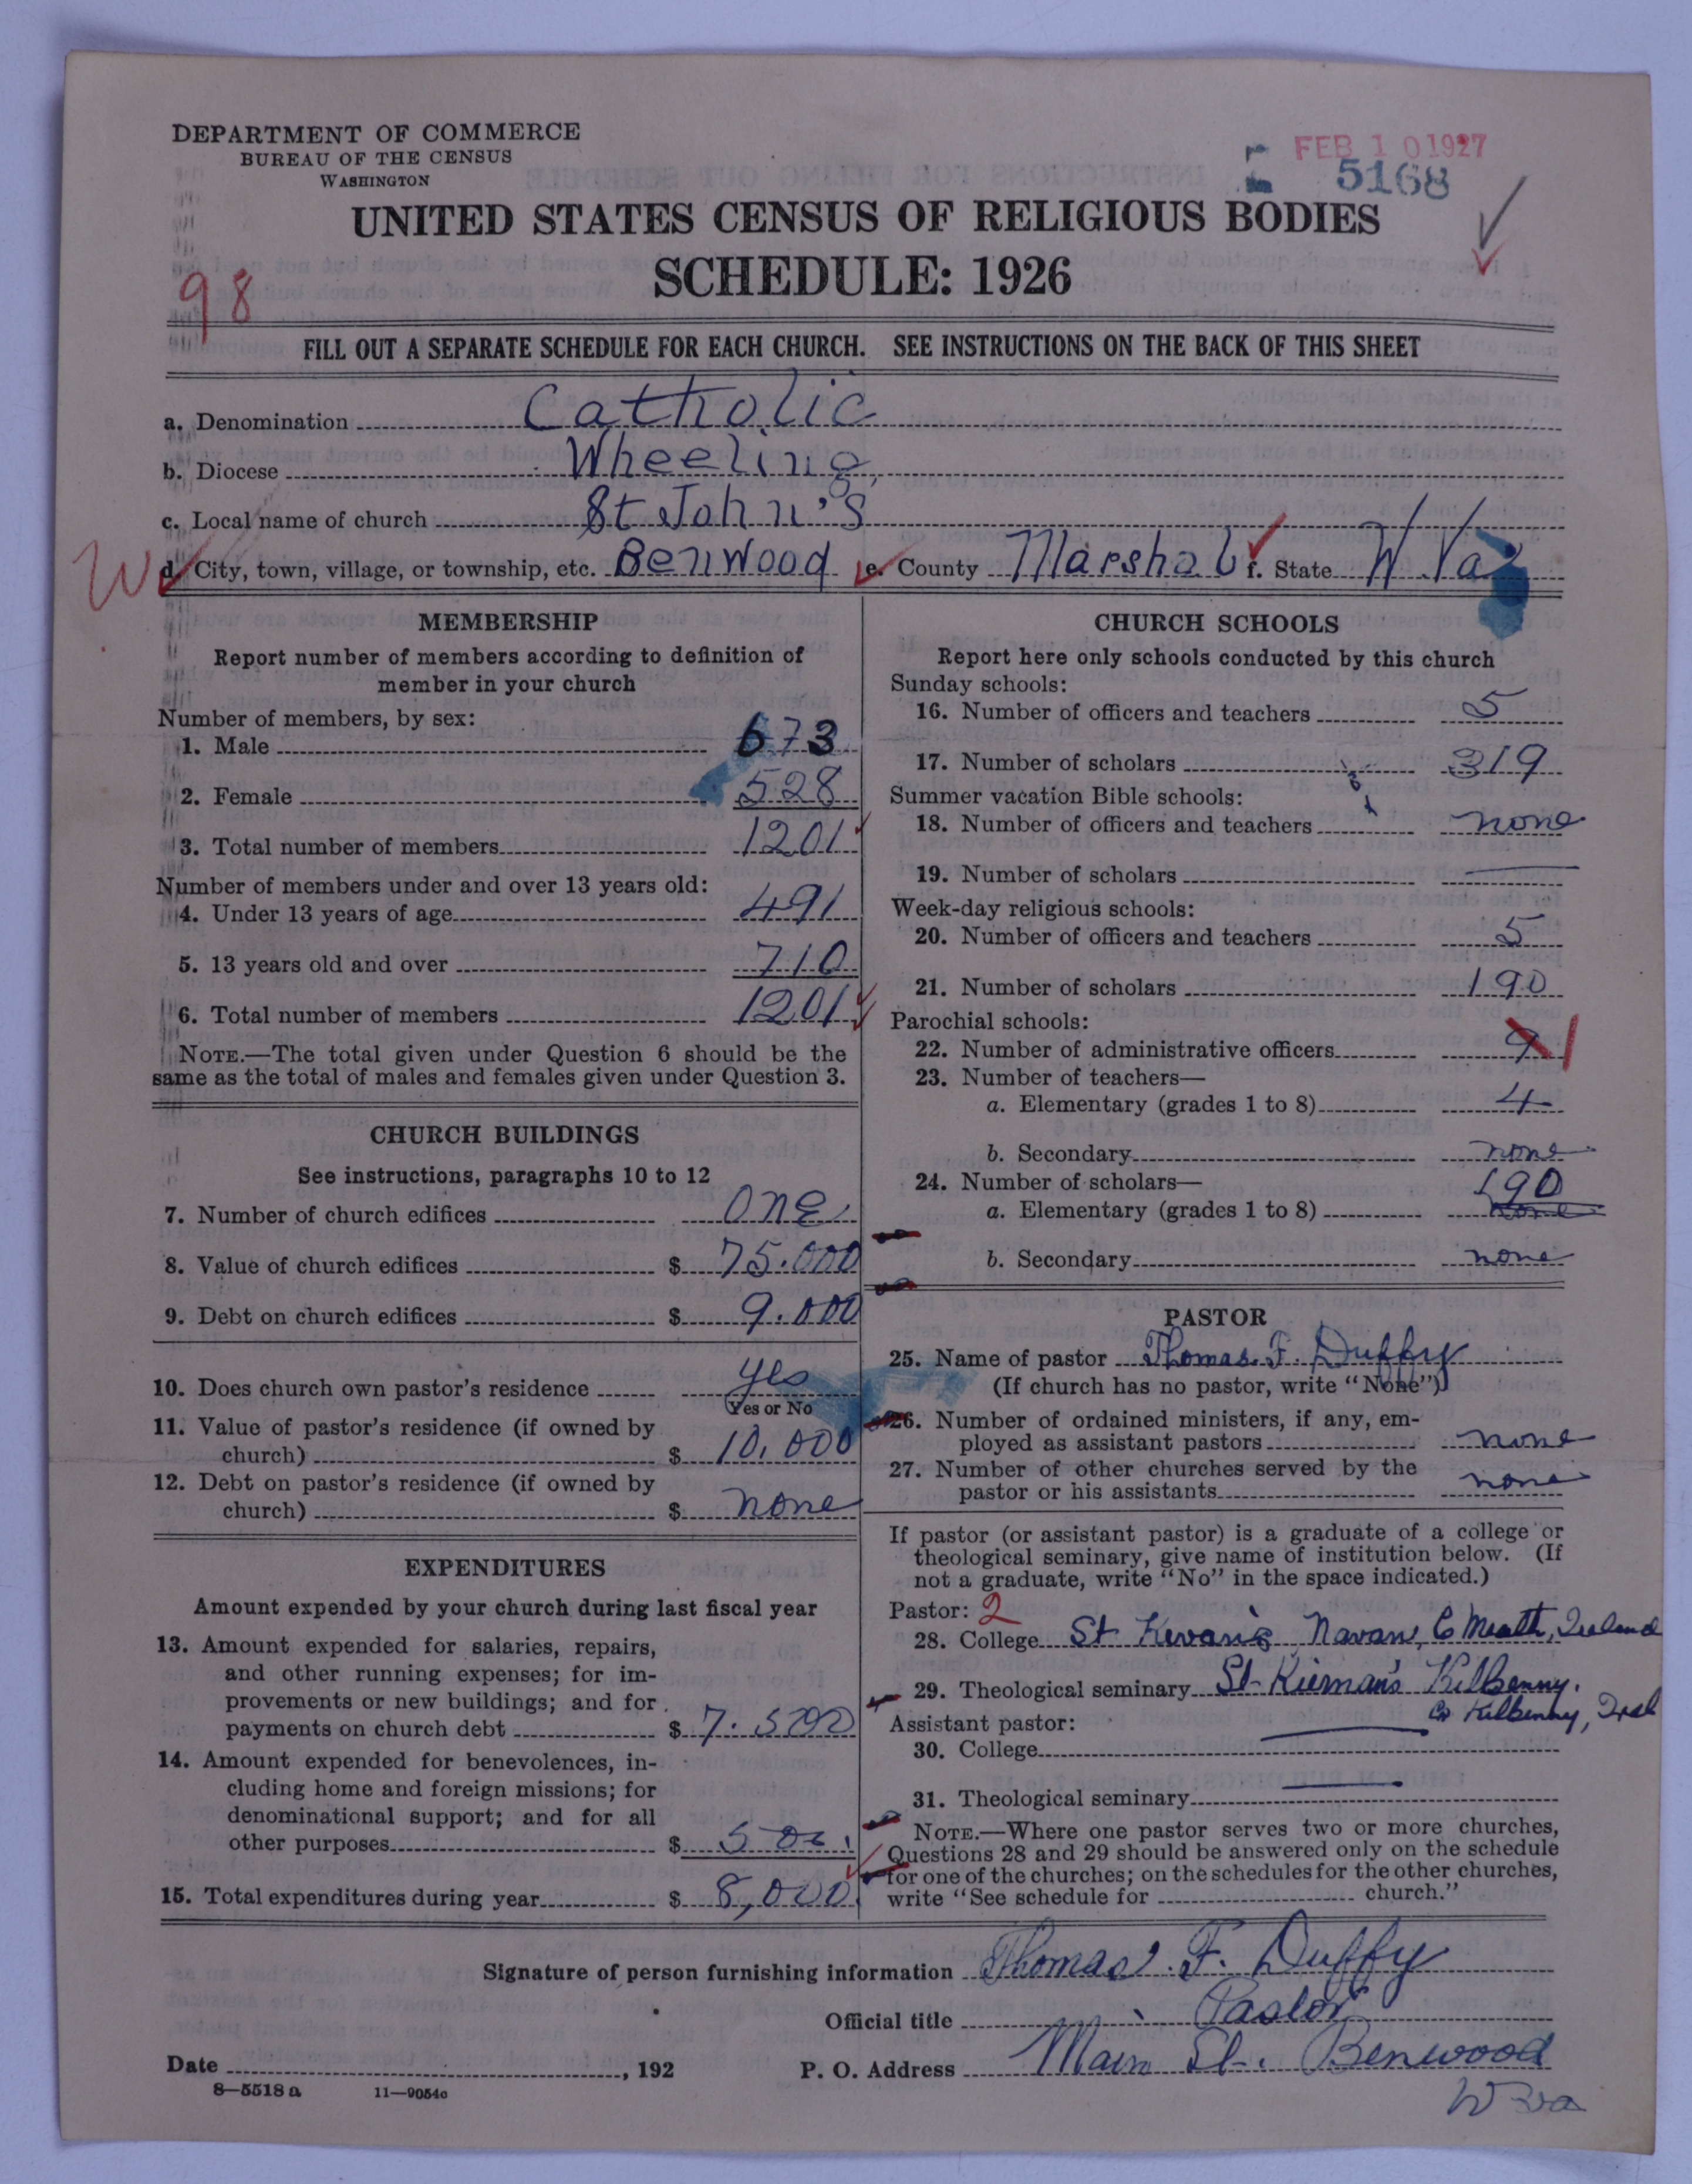 DEPARTMENT OF COMMERCE
BUREAU OF THE CENSUS
WASHINGTON
FEB 10 1927
5168
UNITED STATES CENSUS OF RELIGIOUS BODIES
SCHEDULE: 1926
98
FILL OUT A SEPARATE SCHEDULE FOR EACH CHURCH. SEE INSTRUCTIONS ON THE BACK OF THIS SHEET
a. Denomination Catholic
b. Diocese Wheeling,
c. Local name of church St John's
W d. City, town, village, or township, etc. Benwood e. County Marshal f. State W. Va
MEMBERSHIP
Report number of members according to definition of
member in your church
Number of members, by sex:
1. Male 673
2. Female 528
3. Total number of members 1201
Number of members under and over 13 years old:
4. Under 13 years of age 491
5. 13 years old and over 710
6. Total number of members 1201
NOTE.—The total given under Question 6 should be the
same as the total of males and females given under Question 3.
CHURCH BUILDINGS
See instructions, paragraphs 10 to 12
7. Number of church edifices one
8. Value of church edifices $ 75.000
9. Debt on church edifices $ 9.000
10. Does church own pastor's residence yes
Yes or No
11. Value of pastor's residence (if owned by
church) $ 10,000
12. Debt on pastor's residence (if owned by
church) $ none
EXPENDITURES
Amount expended by your church during last fiscal year
13. Amount expended for salaries, repairs,
and other running expenses; for im-
provements or new buildings; and for
payments on church debt $ 7.500
14. Amount expended for benevolences, in-
cluding home and foreign missions; for
denominational support; and for all
other purposes $ 500.
15. Total expenditures during year $ 8,000.
CHURCH SCHOOLS
Report here only schools conducted by this church
Sunday schools:
16. Number of officers and teachers 5
17. Number of scholars 319
Summer vacation Bible schools:
18. Number of officers and teachers none
19. Number of scholars
Week-day religious schools:
20. Number of officers and teachers 5
21. Number of scholars 190
Parochial schools:
22. Number of administrative officers 9 1
23. Number of teachers—
a. Elementary (grades 1 to 8) 4
b. Secondary none
24. Number of scholars— 190
a. Elementary (grades 1 to 8) none
b. Secondary none
PASTOR
25. Name of pastor Thomas. F. Duffy
(If church has no pastor, write "None")
26. Number of ordained ministers, if any, em-
ployed as assistant pastors none
27. Number of other churches served by the
pastor or his assistants none
If pastor (or assistant pastor) is a graduate of a college or
theological seminary, give name of institution below. (If
not a graduate, write "No" in the space indicated.)
Pastor: 2
28. College St Navan, Co Meath, Ireland
29. Theological seminary St Kieran's Kilkenny.
Co Kilkenny, Irel
Assistant pastor:
30. College
31. Theological seminary
NOTE.—Where one pastor serves two or more churches,
Questions 28 and 29 should be answered only on the schedule
for one of the churches; on the schedules for the other churches,
write "See schedule for church."
Signature of person furnishing information Thomas. F. Duffy
Official title Pastor
Date , 192 P. O. Address Main St. Benwood
W Va
8—5518 a 11—9054c